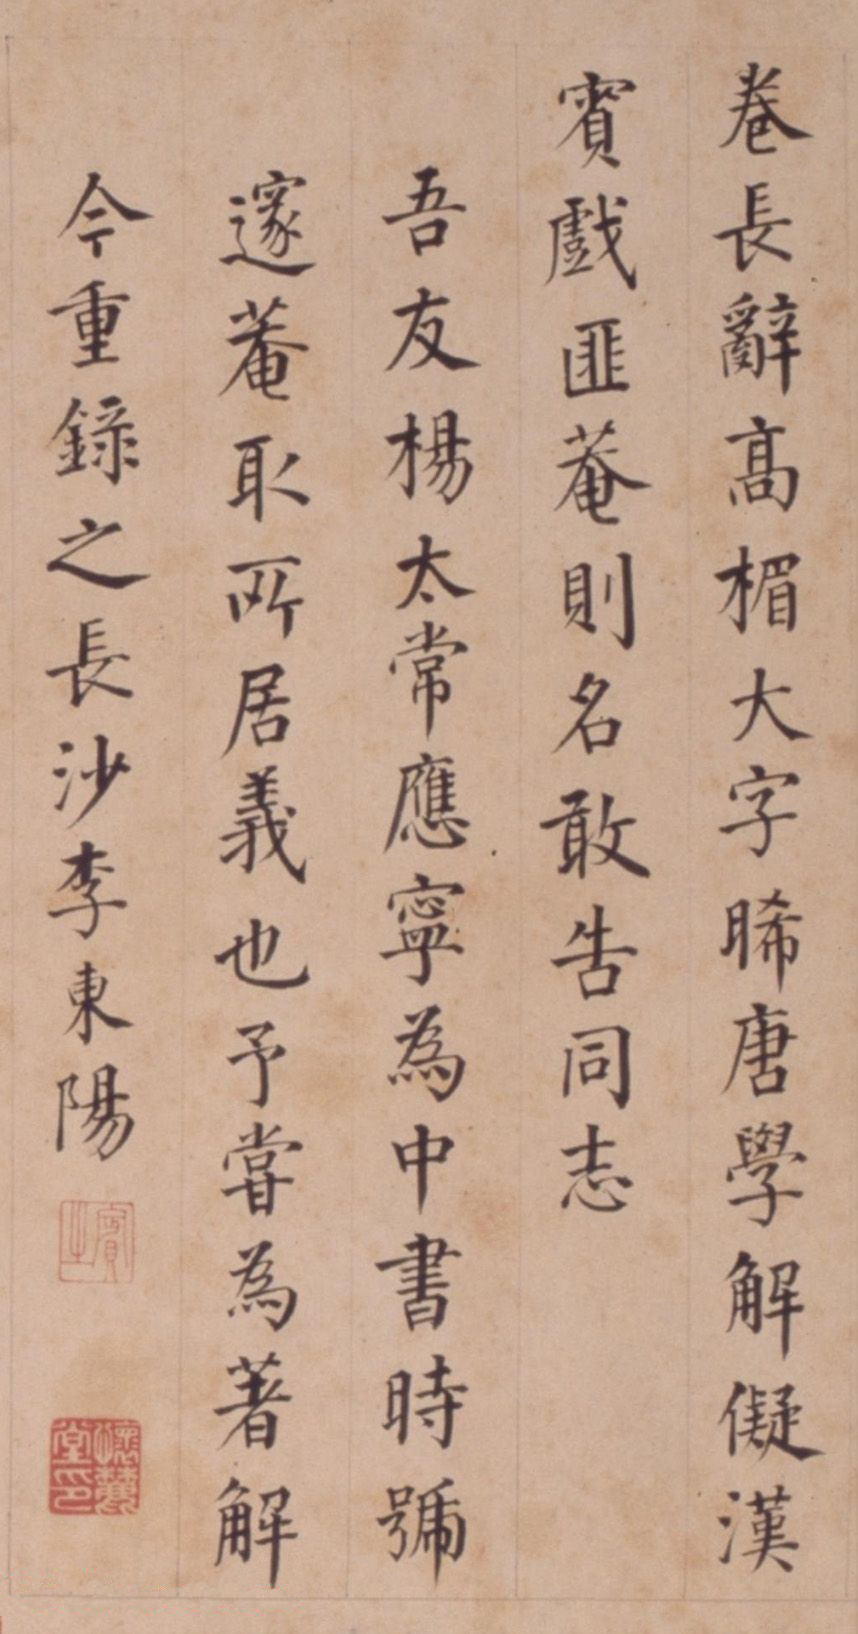 卷長辭高楣大字晞唐學解儗漢
賓戲匪菴則名敢告同志
吾友楊太常應寧為中書時號
邃菴取所居義也予嘗為著解
今重錄之長沙李東陽
賓之
懷麓堂印